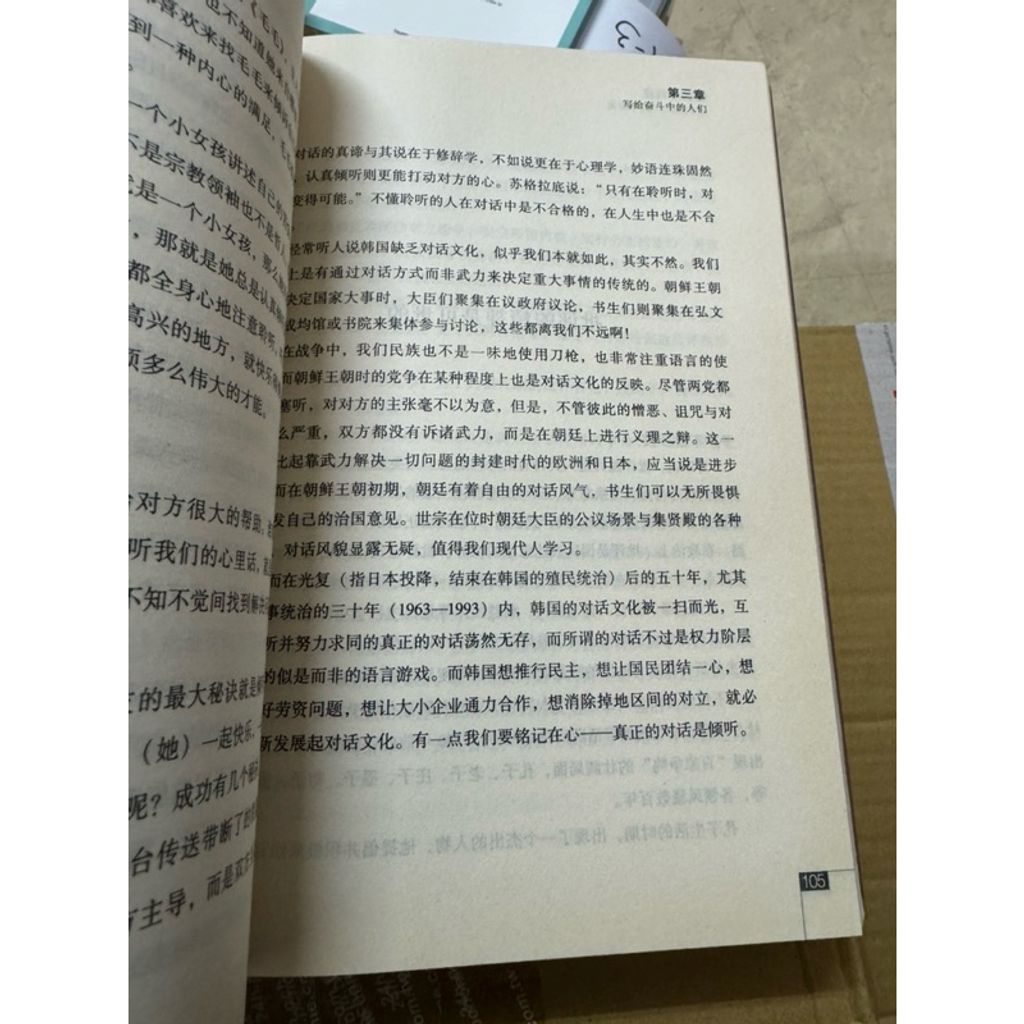 《毛毛》
也不知道她来自
都喜欢来找毛毛来倾诉
到一种内心的满足，毛
一个小女孩讲述自己的
不是宗教领袖也不是哲
是一个小女孩，那么
，那就是她总是认真地
都全身心地注意聆听，
高兴的地方，就快乐
项多么伟大的才能。
对方很大的帮助，
听我们的心里话，
不知不觉间找到解决
的最大秘诀就是倾
（她）一起快乐，
呢？成功有几个
台传送带断了的
方主导，而是双方
第三章
写给奋斗中的人们
对话的真谛与其说在于修辞学，不如说更在于心理学，妙语连珠固然
，认真倾听则更能打动对方的心。苏格拉底说：“只有在聆听时，对
变得可能。”不懂聆听的人在对话中是不合格的，在人生中也是不合
经常听人说韩国缺乏对话文化，似乎我们本就如此，其实不然。我们
上是有通过对话方式而非武力来决定重大事情的传统的。朝鲜王朝
决定国家大事时，大臣们聚集在议政府议论，书生们则聚集在弘文
成均馆或书院来集体参与讨论，这些都离我们不远啊！
在战争中，我们民族也不是一味地使用刀枪，也非常注重语言的使
而朝鲜王朝时的党争在某种程度上也是对话文化的反映。尽管两党都
塞听，对对方的主张毫不以为意，但是，不管彼此的憎恶、诅咒与对
么严重，双方都没有诉诸武力，而是在朝廷上进行义理之辩。这一
比起靠武力解决一切问题的封建时代的欧洲和日本，应当说是进步
而在朝鲜王朝初期，朝廷有着自由的对话风气，书生们可以无所畏惧
发自己的治国意见。世宗在位时朝廷大臣的公议场景与集贤殿的各种
，对话风貌显露无疑，值得我们现代人学习。
而在光复（指日本投降，结束在韩国的殖民统治）后的五十年，尤其
事统治的三十年（1963—1993）内，韩国的对话文化被一扫而光，互
听并努力求同的真正的对话荡然无存，而所谓的对话不过是权力阶层
的似是而非的语言游戏。而韩国想推行民主，想让国民团结一心，想
好劳资问题，想让大小企业通力合作，想消除掉地区间的对立，就必
新发展起对话文化。有一点我们要铭记在心——真正的对话是倾听。
105